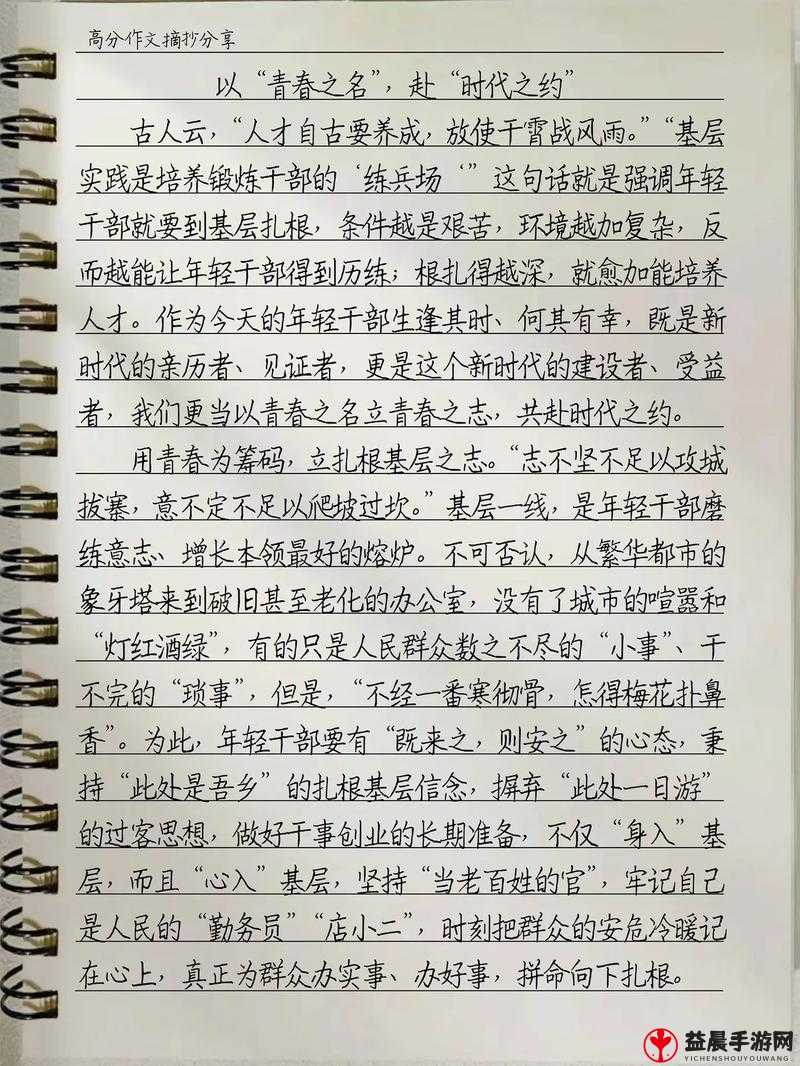 高分作文摘抄分享
以“青春之名”，赴“时代之约”
古人云，“人才自古要养成，放使干霄战风雨。”“基层
实践是培养锻炼干部的‘练兵场‘”这句话就是强调年轻
干部就要到基层扎根，条件越是艰苦，环境越加复杂，反
而越能让年轻干部得到历练；根扎得越深，就愈加能培养
人才。作为今天的年轻干部生逢其时、何其有幸，既是新
时代的亲历者、见证者，更是这个新时代的建设者、受益
者，我们更当以青春之名立青春之志，共赴时代之约。
用青春为筹码，立扎根基层之志。“志不坚不足以攻城
拔寨，意不定不足以爬坡过坎。”基层一线，是年轻干部磨
练意志、增长本领最好的熔炉。不可否认，从繁华都市的
象牙塔来到破旧甚至老化的办公室，没有了城市的喧嚣和
“灯红酒绿”，有的只是人民群众数之不尽的“小事”、干
不完的“琐事”，但是，“不经一番寒彻骨，怎得梅花扑鼻
香”。为此，年轻干部要有“既来之，则安之”的心态，秉
持“此处是吾乡”的扎根基层信念，摒弃“此处一日游”
的过客思想，做好干事创业的长期准备，不仅“身入”基
层，而且“心入”基层，坚持“当老百姓的官”，牢记自己
是人民的“勤务员”“店小二”，时刻把群众的安危冷暖记
在心上，真正为群众办实事、办好事，拼命向下扎根。
益晨手游网
YICHENSHOUYOUWANG